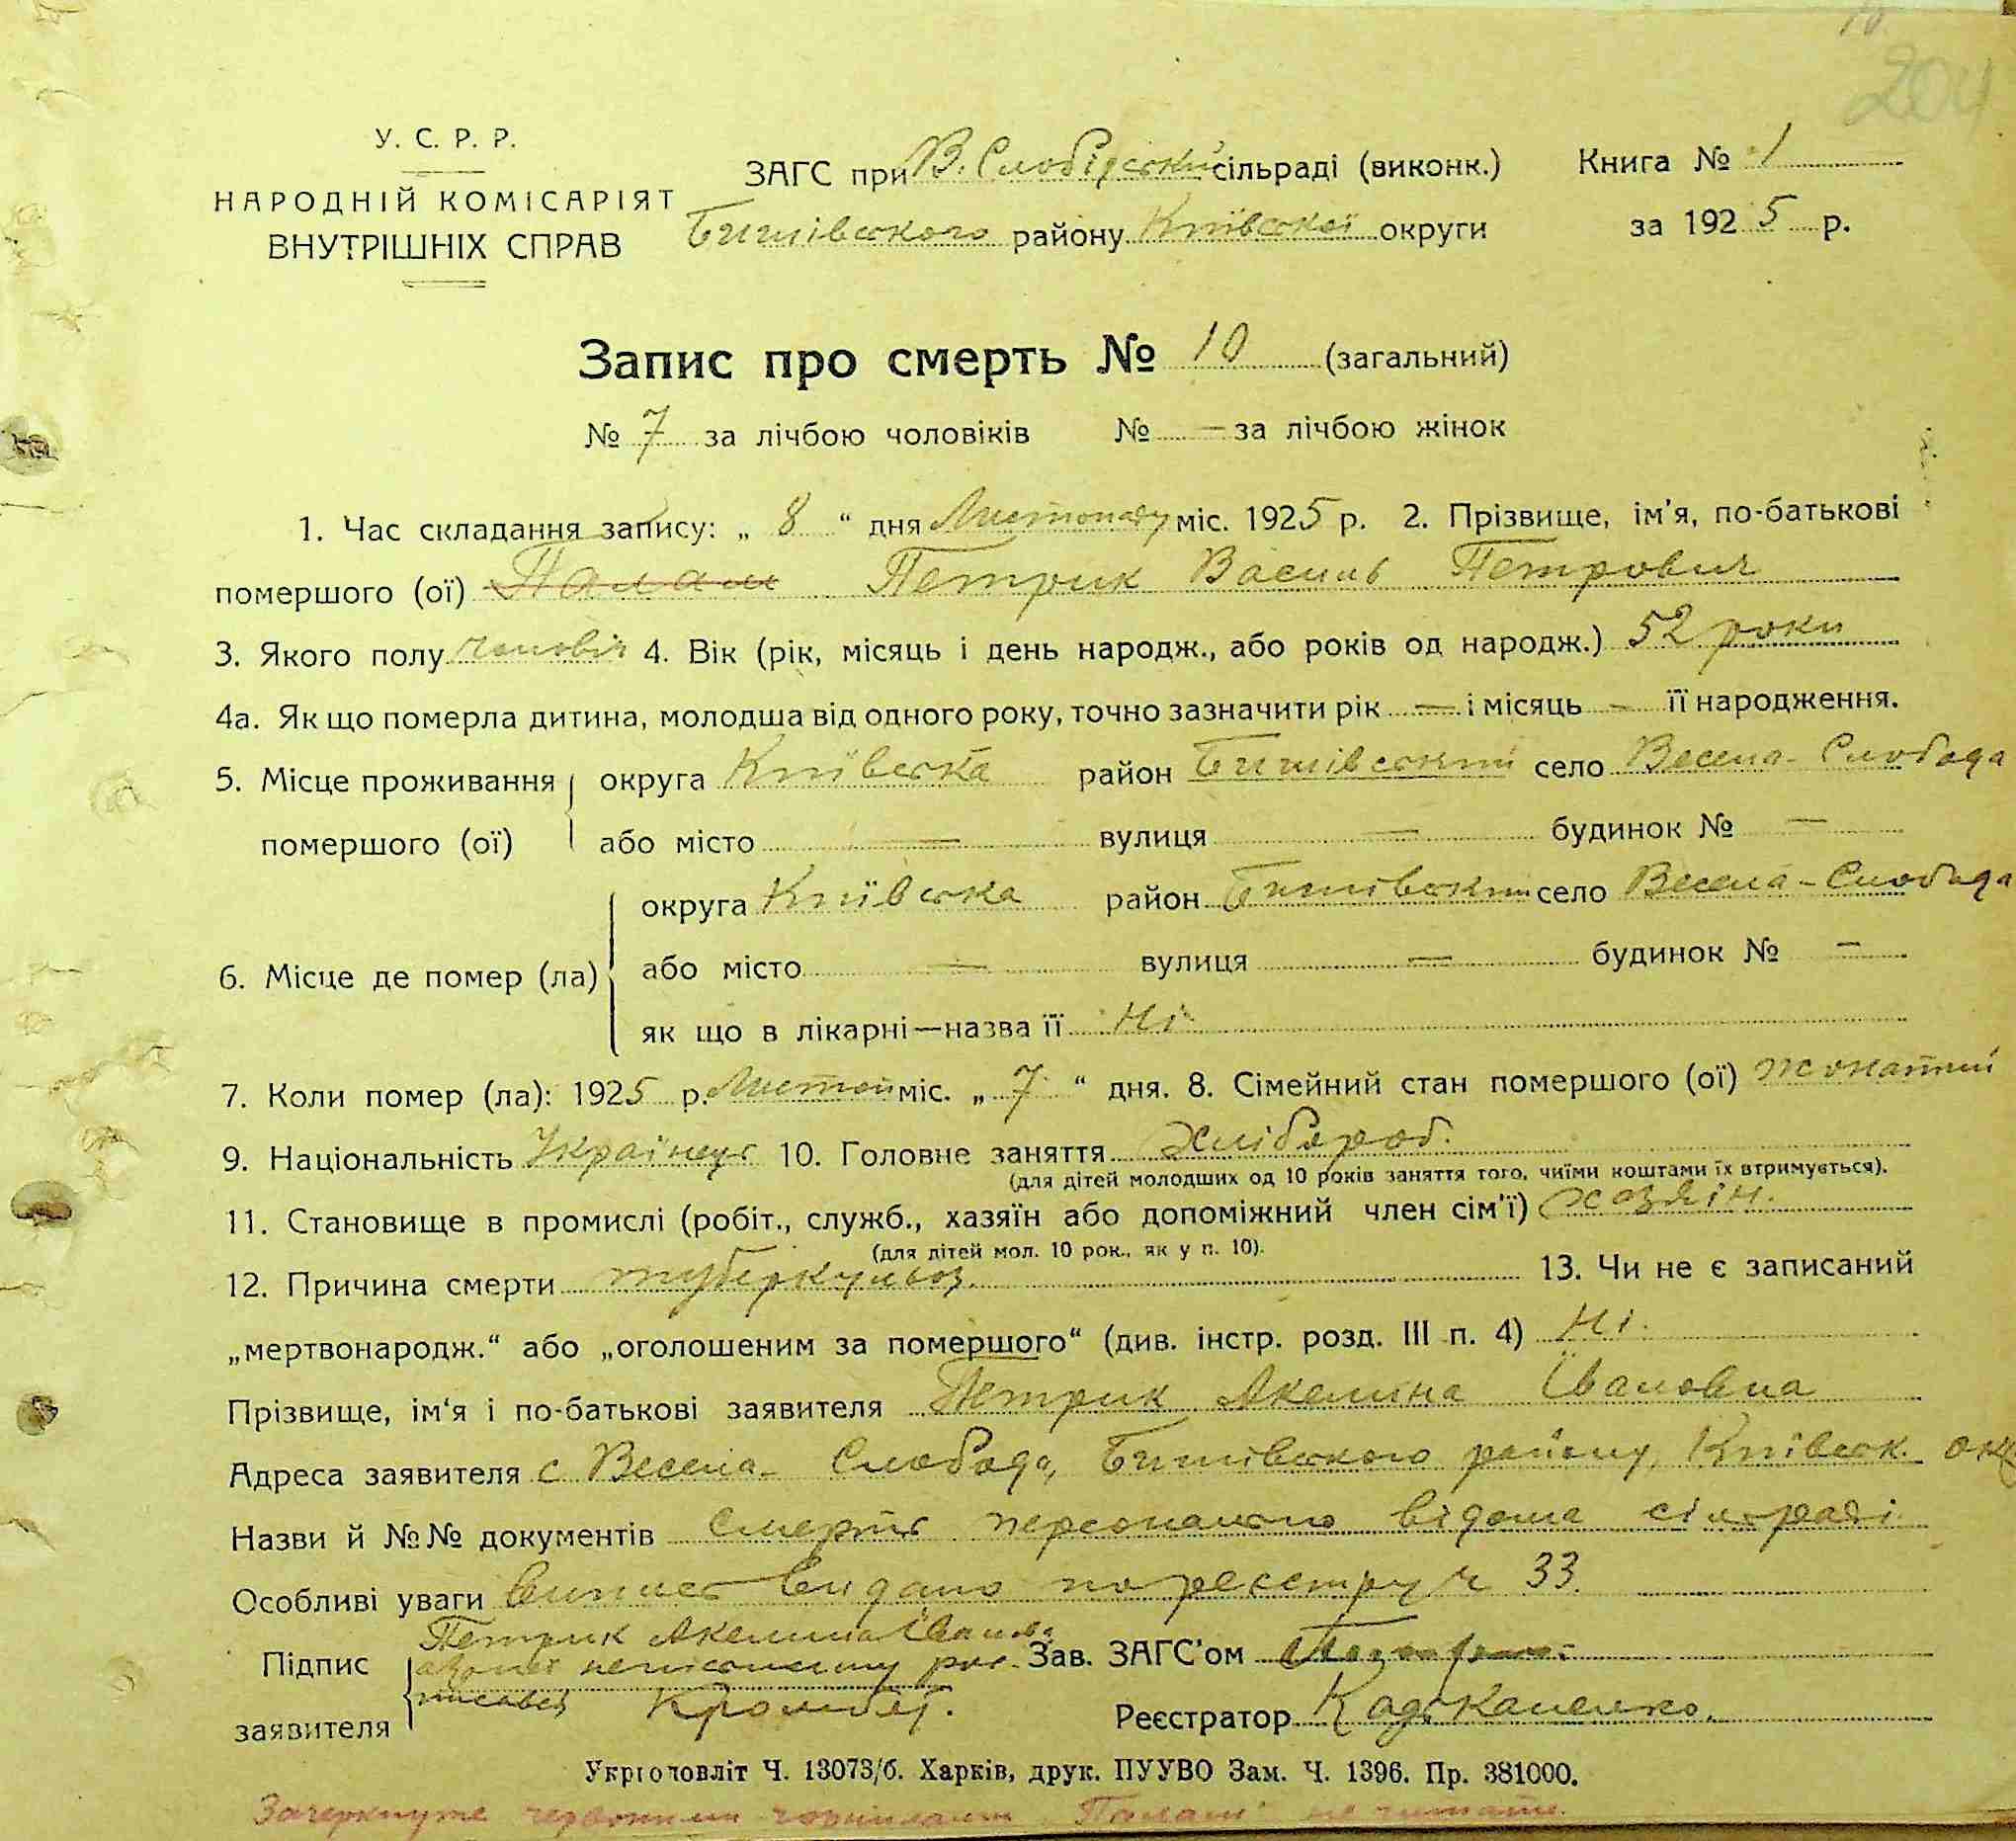 204
У. С. Р. Р.
НАРОДНІЙ КОМІСАРІЯТ
ВНУТРІШНІХ СПРАВ
ЗАГС при В. Слобідський сільраді (виконк.) Книга № 1
Бишівського району Київської округи за 1925 р.
Запис про смерть № 10 (загальний)
№ 7 за лічбою чоловіків № — за лічбою жінок
1. Час складання запису: „ 8 “ дня Листопаду міс. 1925 р. 2. Прізвище, ім'я, по-батькові
помершого (ої) Палам Петрик Василь Петрович
3. Якого полу чоловіч 4. Вік (рік, місяць і день народж., або років од народж.) 52 роки
4а. Як що померла дитина, молодша від одного року, точно зазначити рік — і місяць — її народження.
5. Місце проживання округа Київська район Бишівський село Весела-Слобода
помершого (ої) або місто — вулиця — будинок № —
округа Київська район Бишівський село Весела-Слобода
6. Місце де помер (ла) або місто — вулиця — будинок № —
як що в лікарні—назва її Ні
7. Коли помер (ла): 1925 р. Листоп міс. „ 7 “ дня. 8. Сімейний стан помершого (ої) жонатий
9. Національність Українець 10. Головне заняття Хлібороб.
(для дітей молодших од 10 років заняття того, чиїми коштами їх втримується).
11. Становище в промислі (робіт., служб., хазяїн або допоміжний член сім'ї) хазяїн.
(для дітей мол. 10 рок., як у п. 10).
12. Причина смерти туберкульоз. 13. Чи не є записаний
„мертвонародж.“ або „оголошеним за помершого“ (див. інстр. розд. III п. 4) Ні.
Прізвище, ім'я і по-батькові заявителя Петрик Акелина Івановна
Адреса заявителя с Весела-Слобода, Бишівського району, Київськ. окр
Назви й №№ документів Смерть персонально відома сільраді
Особливі уваги Випись видано по реєстру ч 33.
Петрик Акелина Іванова
Підпис а за неї неписьменну рос. Зав. ЗАГС'ом
писався
заявителя Реєстратор
Укрголовліт Ч. 13073/б. Харків, друк. ПУУВО Зам. Ч. 1396. Пр. 381000.
Зачеркнуте червоними чорнилами "Палам" не читати.